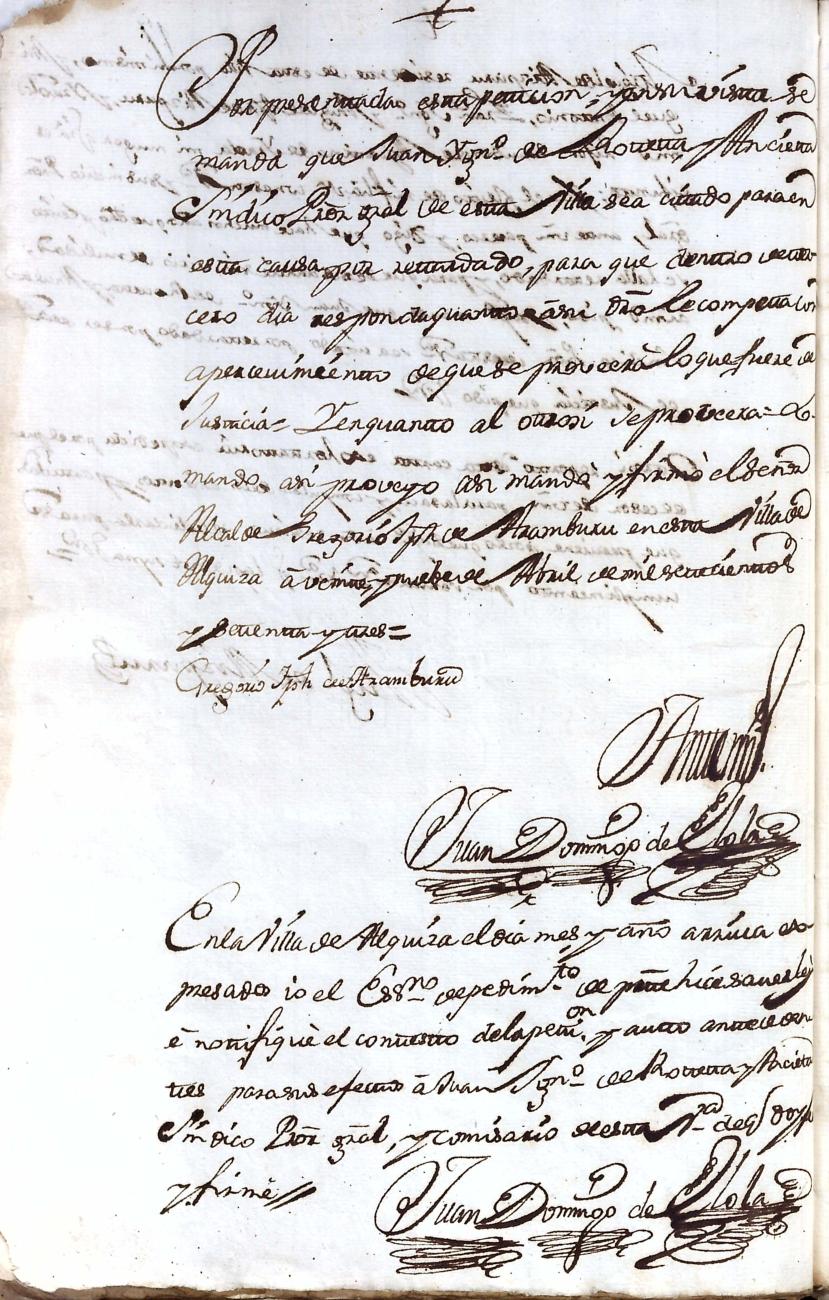 Por presentada esta peticion, y en su vista se
manda que Juan Ygn.º de Rotteta y Ancieta
Sindico Pròr gràl de esta Villa sea citado para en
esta causa por retardado, para que dentro de ter
cero dia responda quanto à su dr̃o le competa con
apercevimiento de que se proveerà lo que fuere de
Justicia = Y en quanto al otrosi se proveera =
mando, asi proveyo asi mandò y firmò el Señor
Alcalde Gregorio Jph de Aramburu en esta Villa de
Alquiza à veinte y nuebe de Abril de mil setecientos
y setenta y tres =
Gregorio Jph de Aramburu
Antemi
Juan Domingo de Elola
En la Villa de Alquiza el dia mes y año arriva ex
presados io el Ess.no de pedim.to de parte hice saver ley
è notifiquè el contesto de la peti.on y auto anteceden
tes para sus efectos à Juan Ygn.º de Rotteta y Ancieta
Sindico Pròr gràl, y comisario de esta N.ª de q.e doy fee
y firmè //
Juan Domingo de Elola